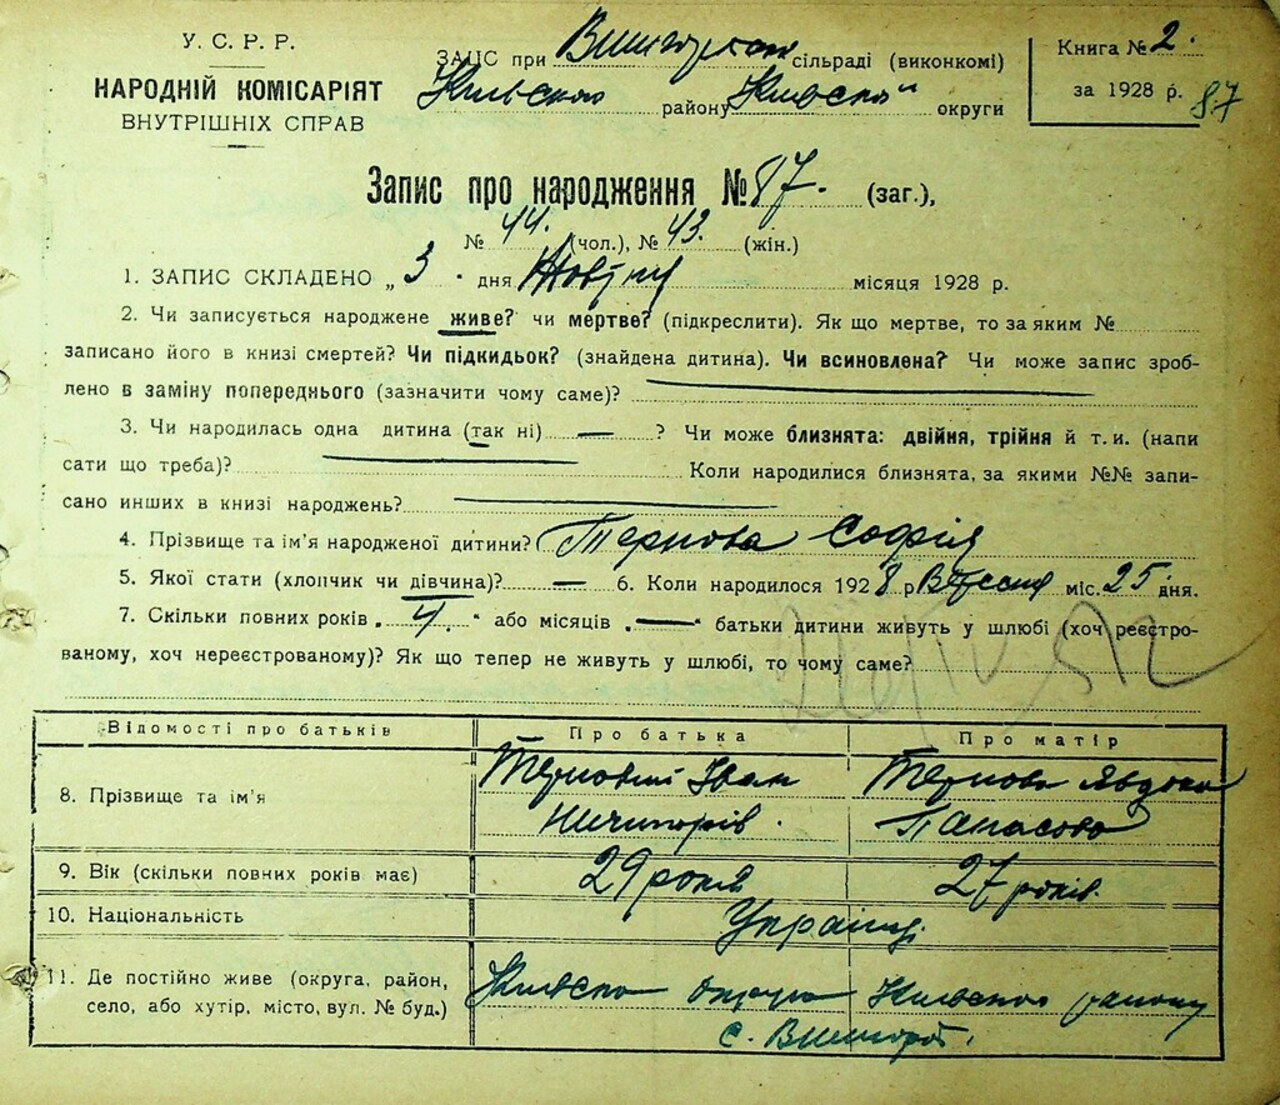 У. С. Р. Р.
НАРОДНІЙ КОМІСАРІЯТ
ВНУТРІШНІХ СПРАВ
ЗАПИС при Вишгородськ сільраді (виконкомі)
Київського району Київської округи
Книга № 2.
за 1928 р.
87
Запис про народження № 87. (заг.),
№ 44. (чол.), № 43. (жін.)
1. ЗАПИС СКЛАДЕНО „ 3 " дня Жовтня місяця 1928 р.
2. Чи записується народжене живе? чи мертве? (підкреслити). Як що мертве, то за яким №
записано його в книзі смертей? Чи підкидьок? (знайдена дитина). Чи всиновлена? Чи може запис зроб-
лено в заміну попереднього (зазначити чому саме)?
3. Чи народилась одна дитина (так ні) — ? Чи може близнята: двійня, трійня й т. и. (напи
сати що треба)? Коли народилися близнята, за якими №№ запи-
сано инших в книзі народжень?
4. Прізвище та ім'я народженої дитини? Тернова Софія
5. Якої стати (хлопчик чи дівчина)? — 6. Коли народилося 1928 р Вересня міс. 25 дня.
7. Скільки повних років „ 4. " або місяців „ — " батьки дитини живуть у шлюбі (хоч реєстро-
ваному, хоч нереєстрованому)? Як що тепер не живуть у шлюбі, то чому саме?
Відомості про батьків Про батька Про матір
8. Прізвище та ім'я Терновий Іван Ничипорів. Тернова Явдоха Панасова
9. Вік (скільки повних років має) 29 років 27 років.
10. Національність Українці
11. Де постійно живе (округа, район, Київська округа Київського району
село, або хутір, місто, вул. № буд.) с. Вишгород.